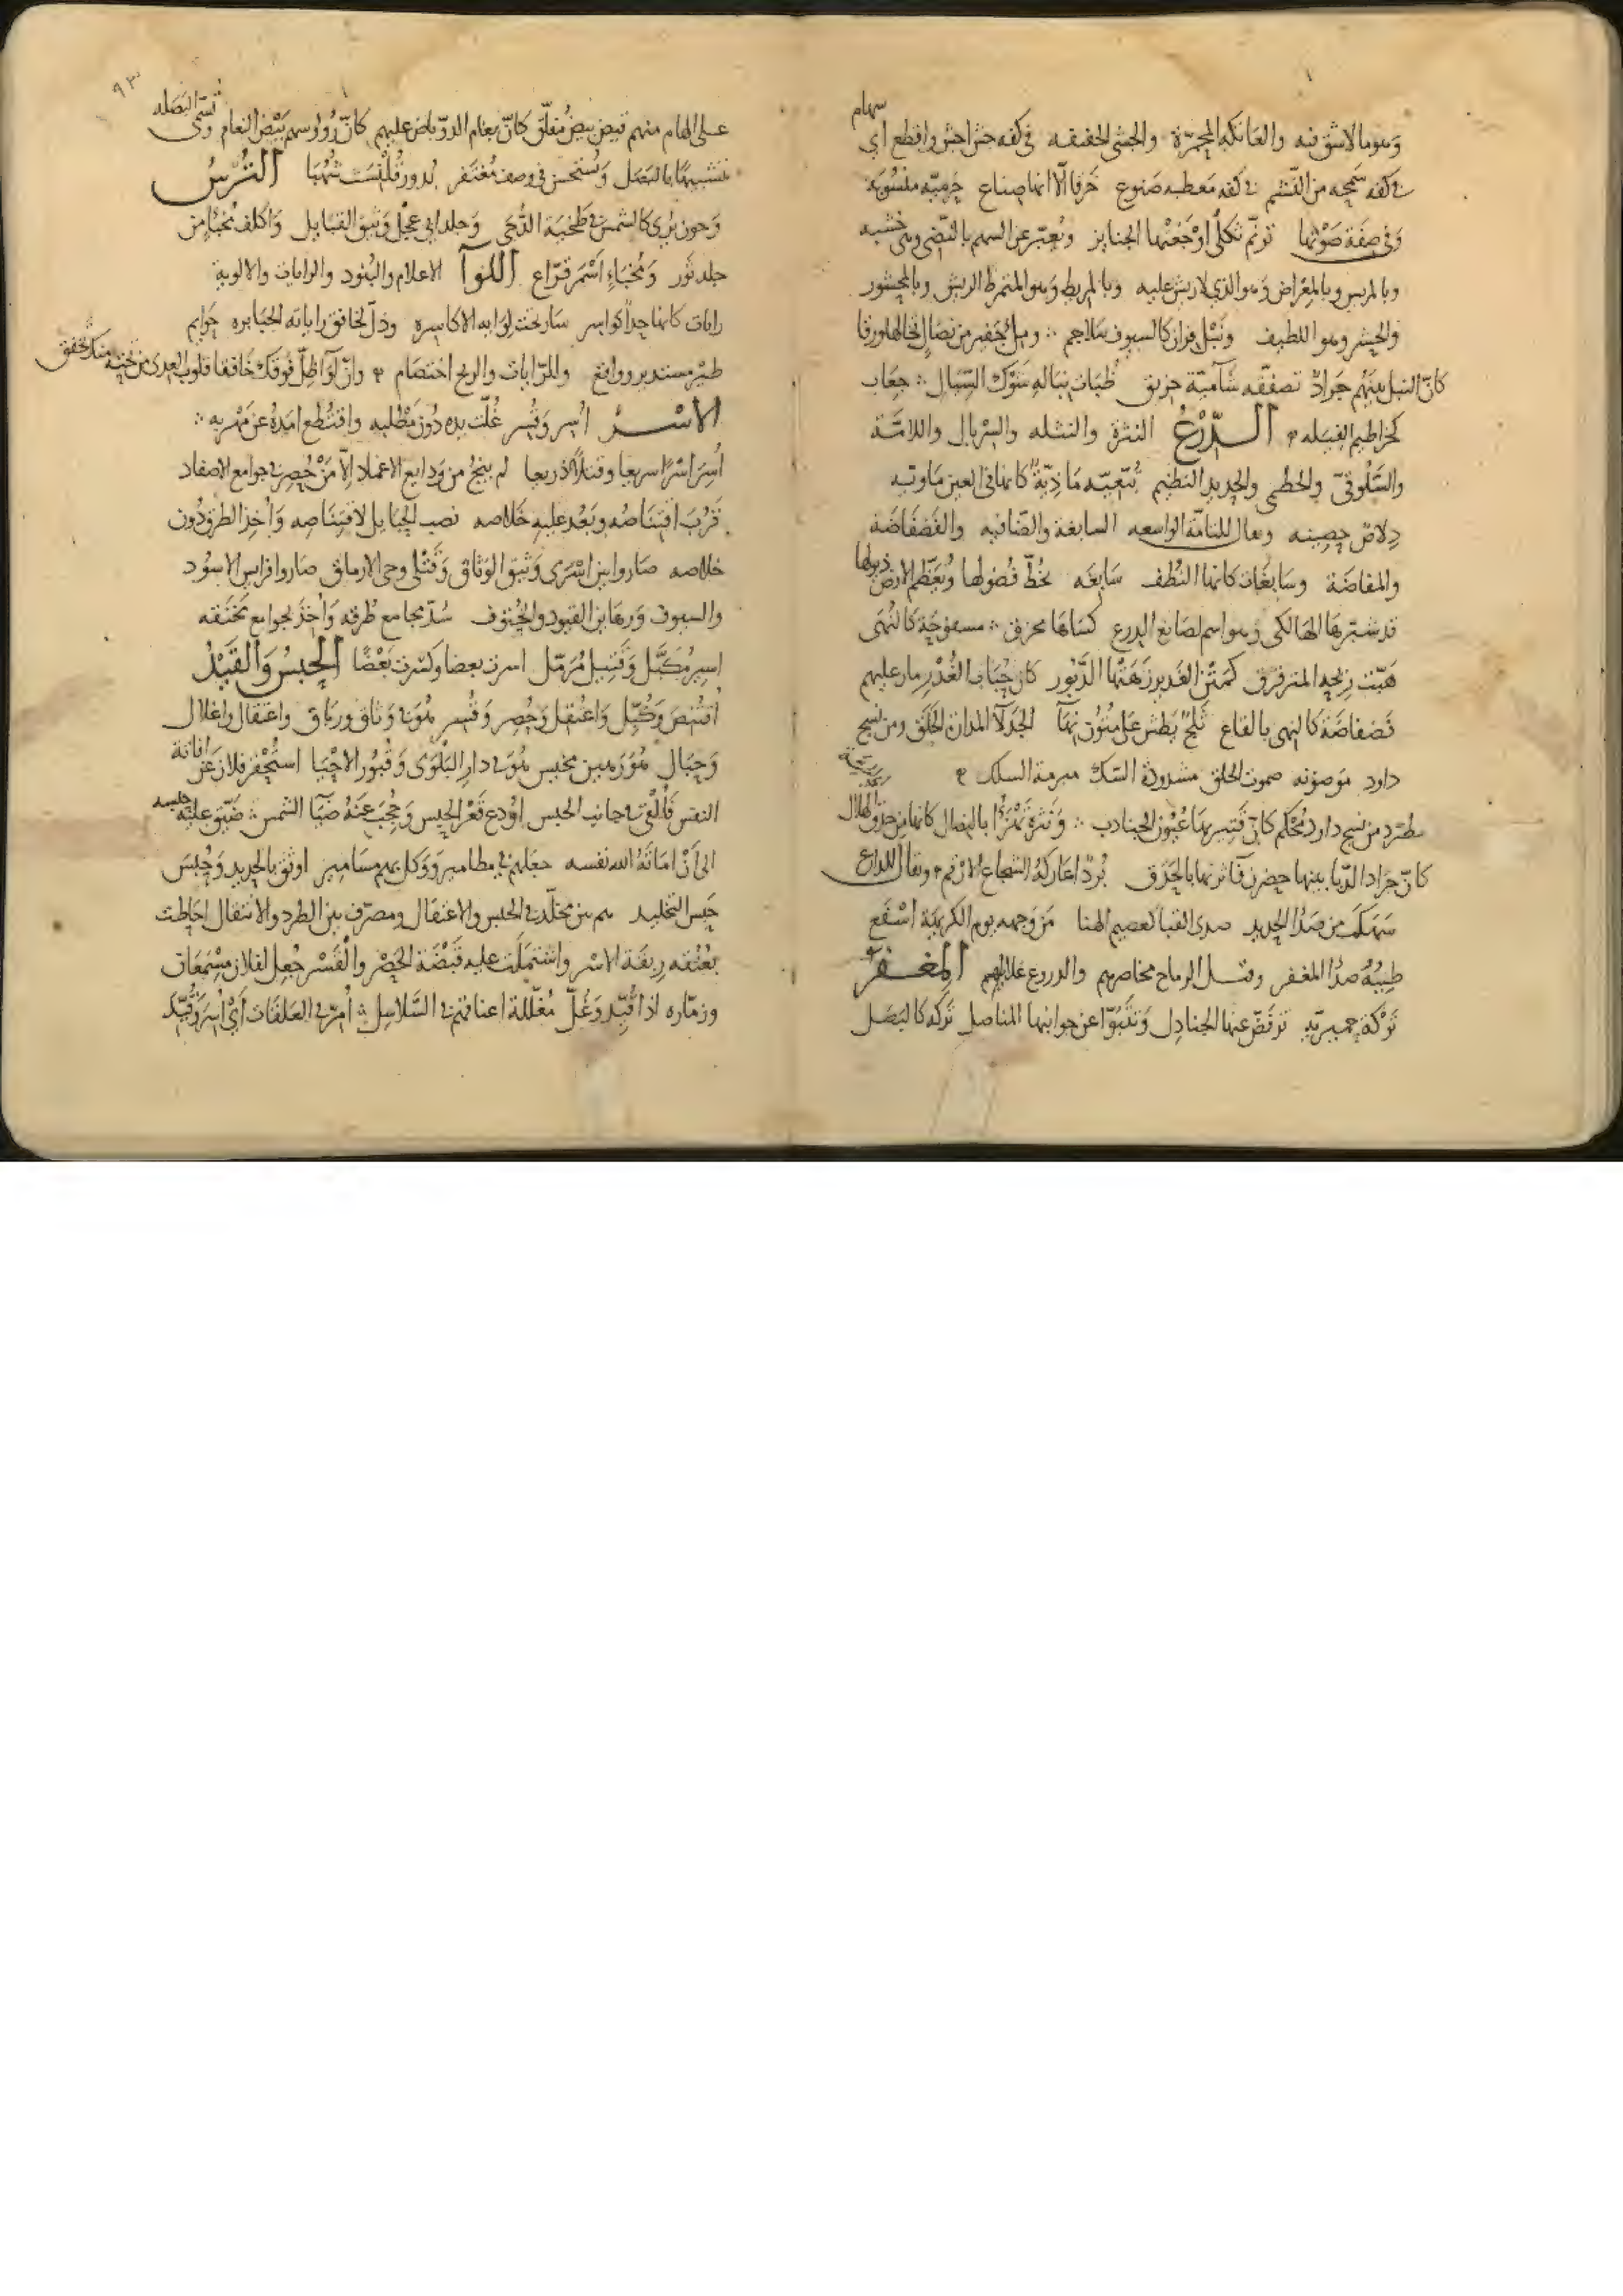 سهام
وهو ما لا شق فيه والعاتكة المحمرة والجشي الخفيفه في كفه جش اجش واقطع اي
في كفه سمحه من النشم في كفه معطيه منوع خرقا الا انها صناع جرميه منسوبة
وفي صفة صوتها ترنم ثكلى اوجعتها الجنايز ويعبر عن السهم بالنضي وهي خشبه
وبالمريش وبالمعراض وهو الذي لا ريش عليه وبالمريط وهو المتمرط الريش وبالمحشور
والحشر وهو اللطيف ونبل قران كالسيوف سلاجم وملء جفير من نصال تخالها ورقا
كان النبل بينهم جراد تصفقه شآمية خريق ظبات نباله شوك السيال جعاب
كخراطيم الفيله الدرع النثرة والنثله والسربال واللامة
والسلوقي والحطمي والحديد النظيم تبعيه ماذية كانما في العين ماويه
دلاص حصينه ويقال للتامة الواسعه السابغة والضافيه والفضفاضة
والمفاضة وسابغات كانها النطف سابغه تخط فضولها ويعظم الارض ذيولها
قد شبرها الهالكي وهو اسم لصانع الدرع كساها محرق مسفوحة كالنهى
هبت ريحه المترقرق كمتن الغدير زهته الدبور كان حباب الغدر مار عليهم
فضفاضة كالنهي بالقاع ثلج بطش على متونها الجدلا المدان الحلق ومن نسج
داود موضونه صموت الحلق مشدودة السك مبرمة السلك
مطرد من نسج داود محكم كان قتيرها عيون الجنادب ونثرة تهزأ بالنصال كانها من خلق الهلال
كان جراد الدبا بينها حضرن فآثرنها بالحدق بردا اعاركه الشجاع الارقم ويقال للدارع
سهك من صدا الحديد صدى القبا لعصيم الهنا من وجهه يوم الكريهة اسفع
طيبه صدا المغفر وقيل الرماح مخاصرهم والدروع غلايلهم المغفر
تركة حميرية ترفض عنها الجنادل وتنبو عن جوانبها المناصل تركه كالبصل
٩٣
على الهام منهم قيض بيض مفلق كان نعام الدو باض عليهم كان رؤوسهم بيض النعام وتسمى البصله
تشبيها بالبصل ويستحسن في وصف مغتفر بدور قلنست شهبا الترس
وجون يرى كالشمس في طخية الدجى وجلد ابي عجل وثيق القبايل واكلف مجنا من
جلد ثور ومجناء اسمر قراع اللوآ الاعلام والبنود والرايات والالوية
رايات كانها حدا كواسر سارت تحت لوايه الاكاسره وذل لخافق راياته الجبابره حوايم
طير مستدير وواقع وللرايات والريح اختصام وان لوآ ظل فوقك خافقا قلوب العدى من تحته منك تخفق
الاسر اسر وقسر غلت يده دون مطلبه واقتطع امده عن مهربه
اسر اسرا سريعا وقتلا ذريعا لم ينج من ودايع الاغماد الا من حصر في جوامع الاصفاد
قرب اقتناصه وبعد عليه خلاصه نصب الحبايل لاقتناصه واخذ الطرق دون
خلاصه صاروا بين اسرى وثيق الوثاق وقتلى وحي الارماق صاروا فرايس الاسود
والسيوف ورهاين القيود والحتوف سد مجامع طرقه واخذ بجوامع مخنقه
اسير مكبل وقتيل مرمل اسرت بعضا وكسرت بعضا الحبس والقيد
اقتنص وكبل واعتقل وحصر وقسر هو في وثاق ورباق واعتقال واغلال
وحبال هو رهين محبس هو في دار البلوى وقبور الاحيا استحفز فلان عن اناثة
النفس فالقي في جانب الحبس اودع قعر الحبس وحجب عنه ضيا الشمس ضيق عليه حلبسه
الى ان اماته الله نفسه جعلهم في مطامير ووكل بهم مسامير اوثق بالحديد وحبس
حبس التخليد هم بين مخلد في الحبس والاعتقال ومصرف بين الطرد والانتقال احاطت
بعنقه ربقة الاسر واشتملت عليه قبضة الحصر والقسر جعل لفلان مسمعات
وزماره اذا قيد وغل مغللة اعناقهم في السلاسل امر في العلقات اي اسر وقيد